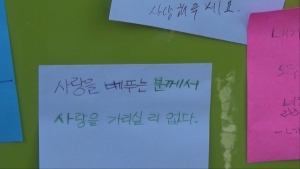 사랑해주세요.
사랑을 베푸는 분께서
사랑을 가려실 리 없다.